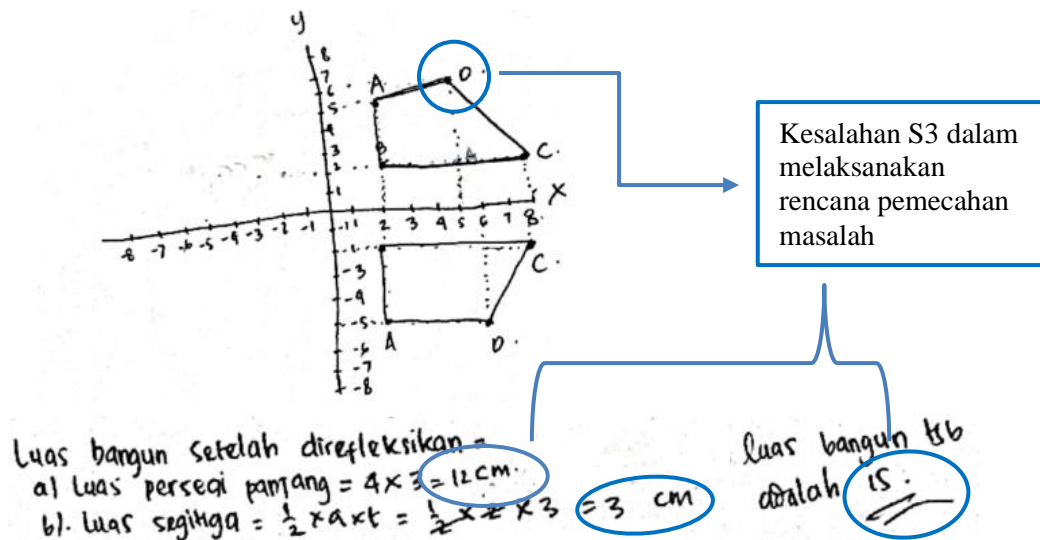 y
8
7
6
5
4
3
2
1
A
D
B
A
C.
X
-8 -7 -6 -5 -4 -3 -2 -1 -1 1 2 3 4 5 6 7 8.
-3
-4
-5
-6
-7
-8
C.
A
D.
Kesalahan S3 dalam
melaksanakan
rencana pemecahan
masalah
Luas bangun setelah direfleksikan =
a) Luas persegi panjang = 4 x 3 = 12 cm.
b). Luas segitiga = 1/2 x a x t = 1/2 x 2 x 3 = 3 cm
luas bangun tsb
adalah 15.